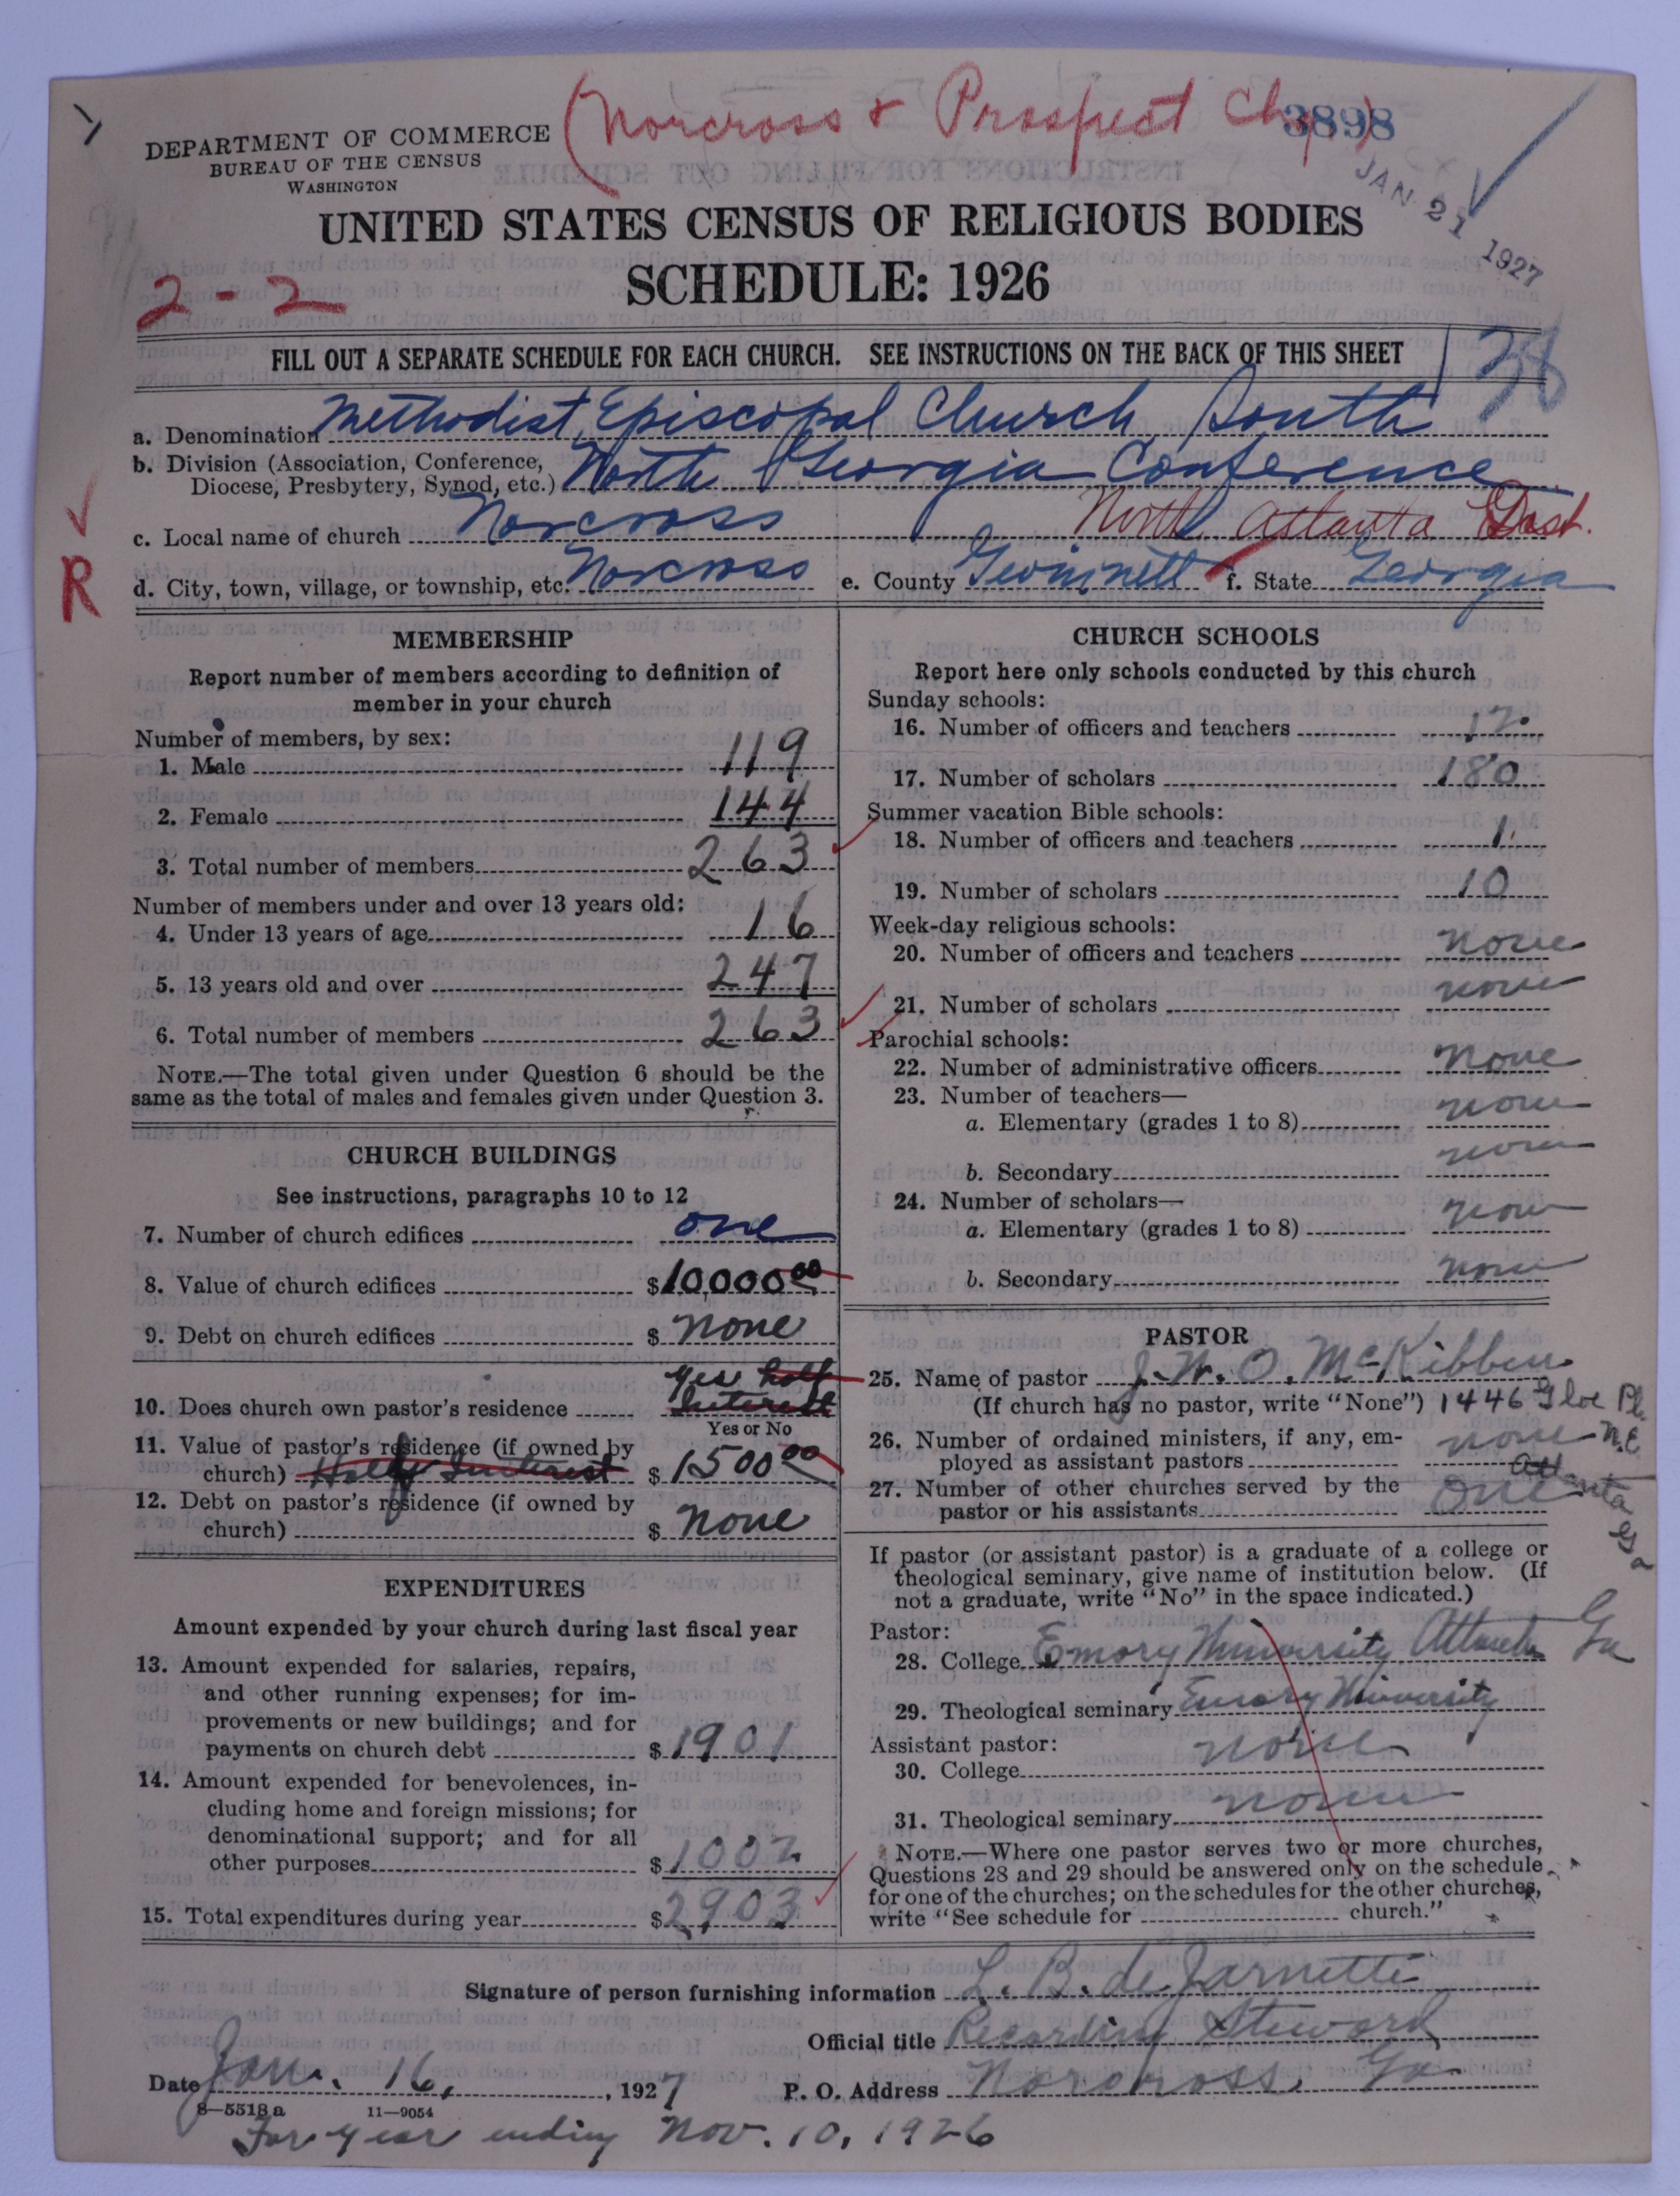 (Norcross & Prospect Ch.)
3898
DEPARTMENT OF COMMERCE
BUREAU OF THE CENSUS
WASHINGTON
JAN 21 1927
UNITED STATES CENSUS OF RELIGIOUS BODIES
SCHEDULE: 1926
2-2
FILL OUT A SEPARATE SCHEDULE FOR EACH CHURCH. SEE INSTRUCTIONS ON THE BACK OF THIS SHEET
38
a. Denomination Methodist Episcopal Church, South
b. Division (Association, Conference,
Diocese, Presbytery, Synod, etc.) North Georgia Conference
c. Local name of church Norcross North Atlanta Dist.
R
d. City, town, village, or township, etc. Norcross e. County Gwinnett f. State Georgia
MEMBERSHIP
Report number of members according to definition of
member in your church
Number of members, by sex:
1. Male 119
2. Female 144
3. Total number of members 263
Number of members under and over 13 years old:
4. Under 13 years of age 16
5. 13 years old and over 247
6. Total number of members 263
NOTE.—The total given under Question 6 should be the
same as the total of males and females given under Question 3.
CHURCH BUILDINGS
See instructions, paragraphs 10 to 12
7. Number of church edifices one
8. Value of church edifices $10,000 00
9. Debt on church edifices $ None
10. Does church own pastor's residence yes half
Interest
Yes or No
11. Value of pastor's residence (if owned by
church) Half Interest $1500 00
12. Debt on pastor's residence (if owned by
church) $ None
EXPENDITURES
Amount expended by your church during last fiscal year
13. Amount expended for salaries, repairs,
and other running expenses; for im-
provements or new buildings; and for
payments on church debt $1901.
14. Amount expended for benevolences, in-
cluding home and foreign missions; for
denominational support; and for all
other purposes $1002
15. Total expenditures during year $2903
CHURCH SCHOOLS
Report here only schools conducted by this church
Sunday schools:
16. Number of officers and teachers 17.
17. Number of scholars 180
Summer vacation Bible schools:
18. Number of officers and teachers 1.
19. Number of scholars 10
Week-day religious schools:
20. Number of officers and teachers none
21. Number of scholars none
Parochial schools:
22. Number of administrative officers none
23. Number of teachers—
a. Elementary (grades 1 to 8) none
b. Secondary none
24. Number of scholars—
a. Elementary (grades 1 to 8) none
b. Secondary none
PASTOR
25. Name of pastor J. W. O. McKibben
(If church has no pastor, write "None") 1446 Pl.
26. Number of ordained ministers, if any, em- N.E.
ployed as assistant pastors none Atlanta Ga
27. Number of other churches served by the
pastor or his assistants one
If pastor (or assistant pastor) is a graduate of a college or
theological seminary, give name of institution below. (If
not a graduate, write "No" in the space indicated.)
Pastor:
28. College Emory University Atlanta Ga
29. Theological seminary Emory University
Assistant pastor:
30. College none
31. Theological seminary none
NOTE.—Where one pastor serves two or more churches,
Questions 28 and 29 should be answered only on the schedule
for one of the churches; on the schedules for the other churches,
write "See schedule for church."
Signature of person furnishing information L. B. deJarnette
Official title Recording Steward
Date Jan. 16, , 1927 P. O. Address Norcross, Ga
8—5518a 11—9054
For year ending Nov. 10, 1926